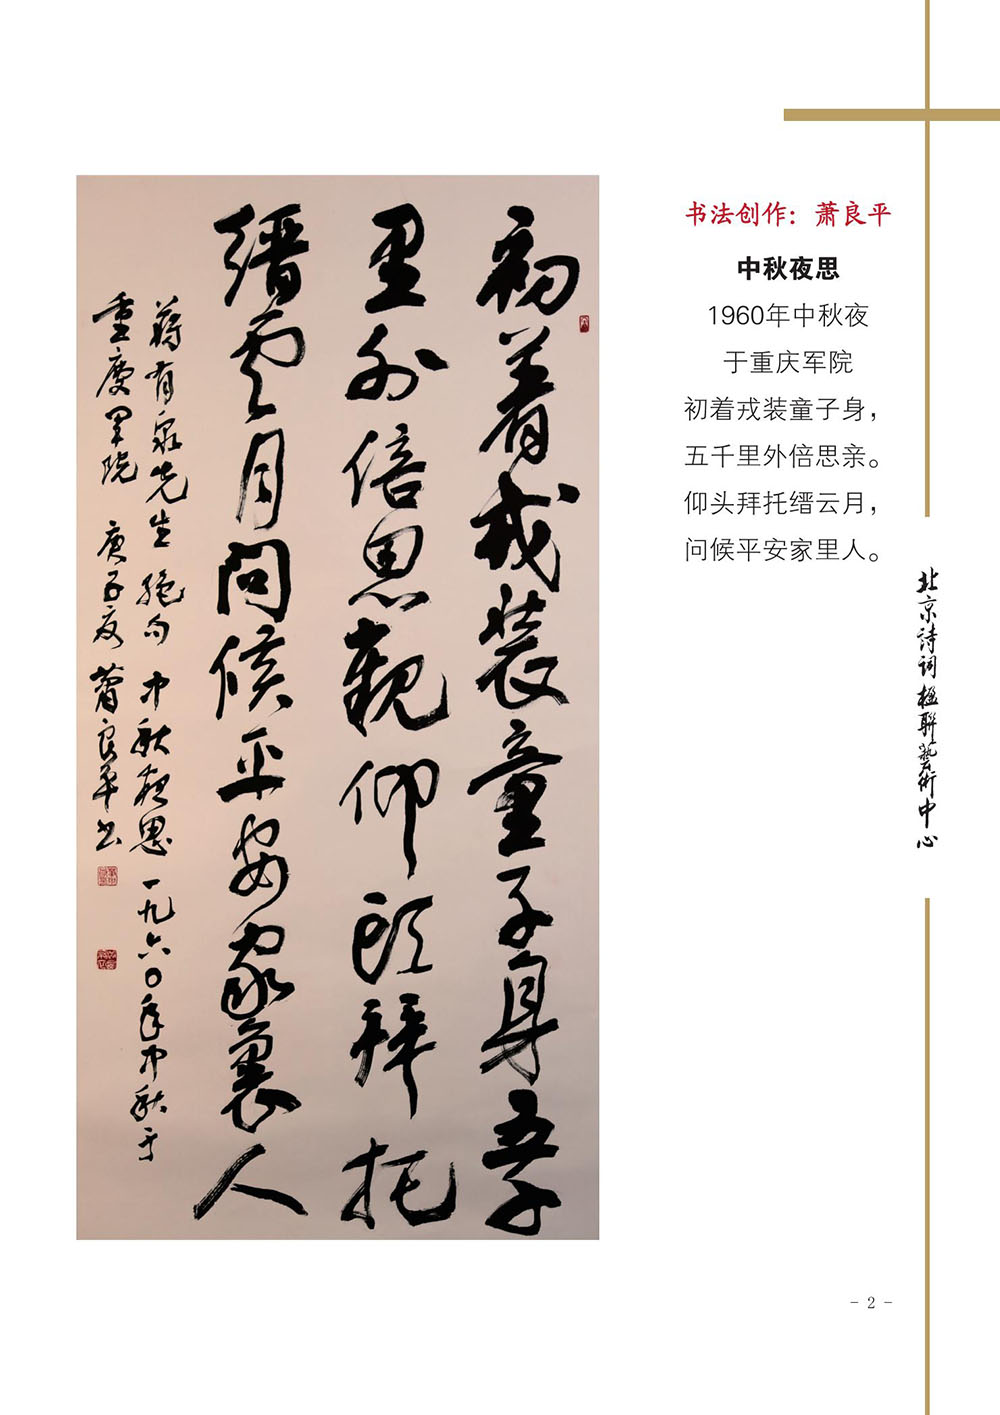 书法创作：萧良平
中秋夜思
1960年中秋夜
于重庆军院
初着戎装童子身，
五千里外倍思亲。
仰头拜托缙云月，
问候平安家里人。
初着戎装童子身五千
里外倍思親仰头拜托
缙云月问候平安家裏人
蒋有泉先生绝句中秋夜思一九六〇年中秋于
重庆军院 庚子夏萧良平书
北京詩词楹聯藝術中心
- 2 -